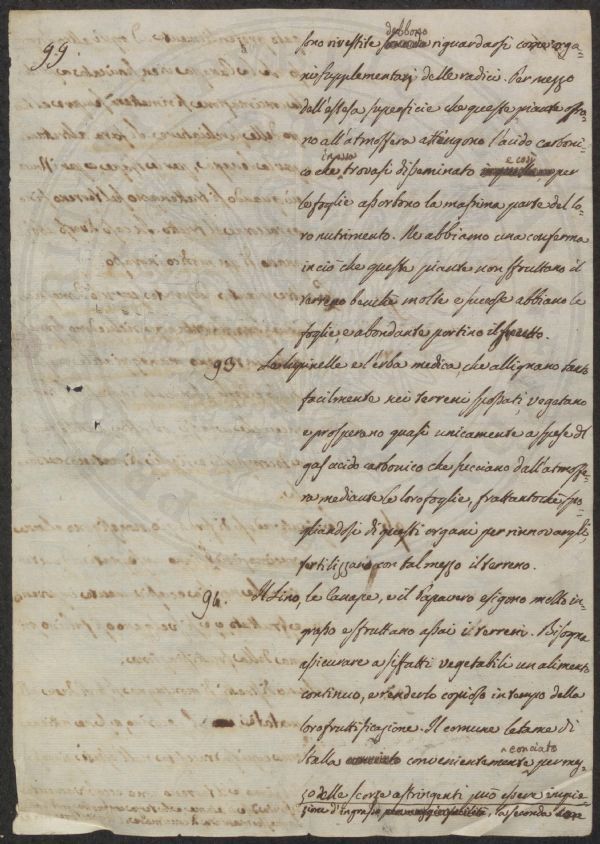 99.
debbono
sono rivestite riguardarsi come orga-
ni supplementarj delle radici. Per mezzo
dell'estesa superficie che queste piante offro-
no all'atmosfera attengono l'acido carboni-
co che, in essa trovasi diseminato e così per
le foglie assorbono la massima parte del lo-
ro nutrimento. Ne abbiamo una conferma
in ciò che queste piante non sfruttano il
terreno benche molte e succose abbiano le
foglie, e abondante portino il frutto.
93. La lupinella e l'erba medica, che allignano tanto
facilmente nei terreni spossati vegetano
e prosperano quasi unicamente a spese di
gas acido carbonico che succiano dall'atmosfe-
ra mediante le loro foglie, frattantochè spo-
gliandosi di questi organi per rinnovargli,
fertilizzano con tal mezzo il terreno.
94. Il Lino, la Canape, e il Papavero esigono molto in-
grasso e sfruttano assai i terreni. Bisogna
assicurare a siffatti vegetabili un alimento
continuo, e renderlo copioso in tempo della
loro fruttificazione. Il comune letame di
stalla convenientemente conciato per mez-
zo delle scorze astringenti può essere
d'ingrasso la seconda